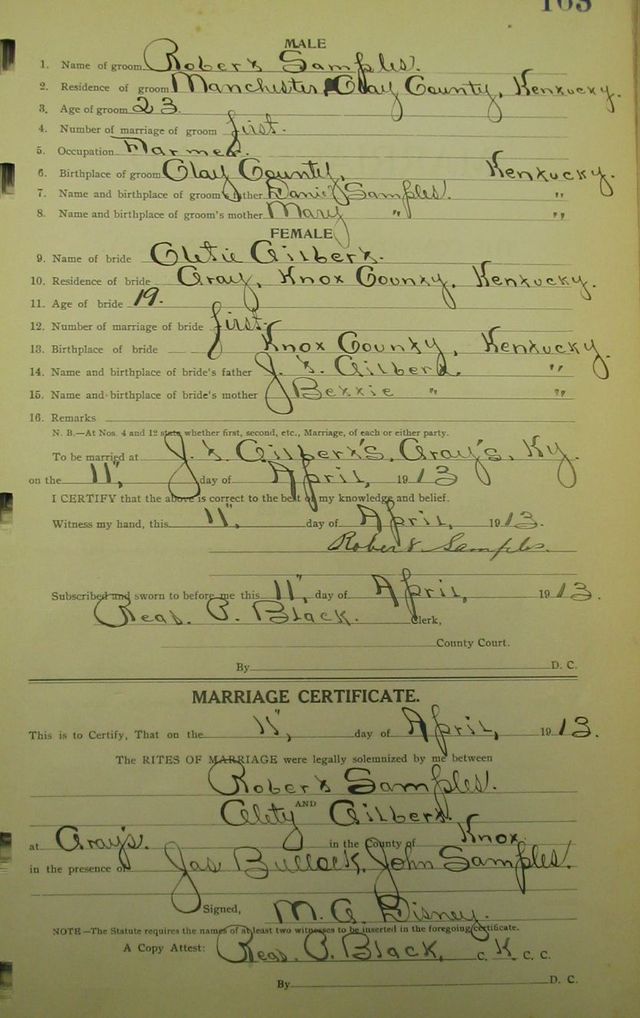 103
MALE
1. Name of groom Robert Samples.
2. Residence of groom Manchester, Clay County, Kentucky.
3. Age of groom 23
4. Number of marriage of groom first.
5. Occupation Farmer.
6. Birthplace of groom Clay County, Kentucky.
7. Name and birthplace of groom's father Daniel Samples. "
8. Name and birthplace of groom's mother Mary " "
FEMALE
9. Name of bride Gilbert.
10. Residence of bride Gray, Knox County, Kentucky.
11. Age of bride 19.
12. Number of marriage of bride first.
13. Birthplace of bride Knox County, Kentucky.
14. Name and birthplace of bride's father J. T. Gilbert. "
15. Name and birthplace of bride's mother Bettie " "
16. Remarks
N. B.—At Nos. 4 and 12 state whether first, second, etc., Marriage, of each or either party.
To be married at J. T. Gilbert's, Gray's, Ky.
on the 11", day of April, 1913
I CERTIFY that the above is correct to the best of my knowledge and belief.
Witness my hand, this 11", day of April, 1913.
Robert Samples.
Subscribed and sworn to before me this 11", day of April, 1913.
Read. P. Black. Clerk,
County Court.
By D. C.
MARRIAGE CERTIFICATE.
This is to Certify, That on the 11", day of April, 1913.
The RITES OF MARRIAGE were legally solemnized by me between
Robert Samples.
AND
Gilbert.
at Gray's. in the County of Knox
in the presence of Jas Bullock, John Samples.
Signed, M. A. Disney.
NOTE—The Statute requires the names of at least two witnesses to be inserted in the foregoing certificate.
A Copy Attest: Read. P. Black, C. K. C. C.
By D. C.